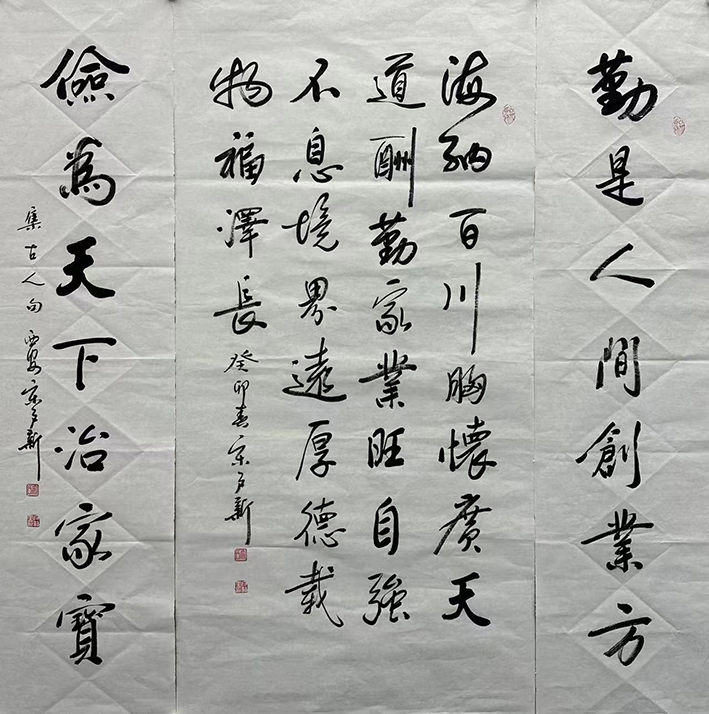 勤是人間創業方
海納百川胸懷廣天
道酬勤家業旺自強
不息境界遠厚德載
物福澤長
癸卯春
儉為天下治家寶
集古人句